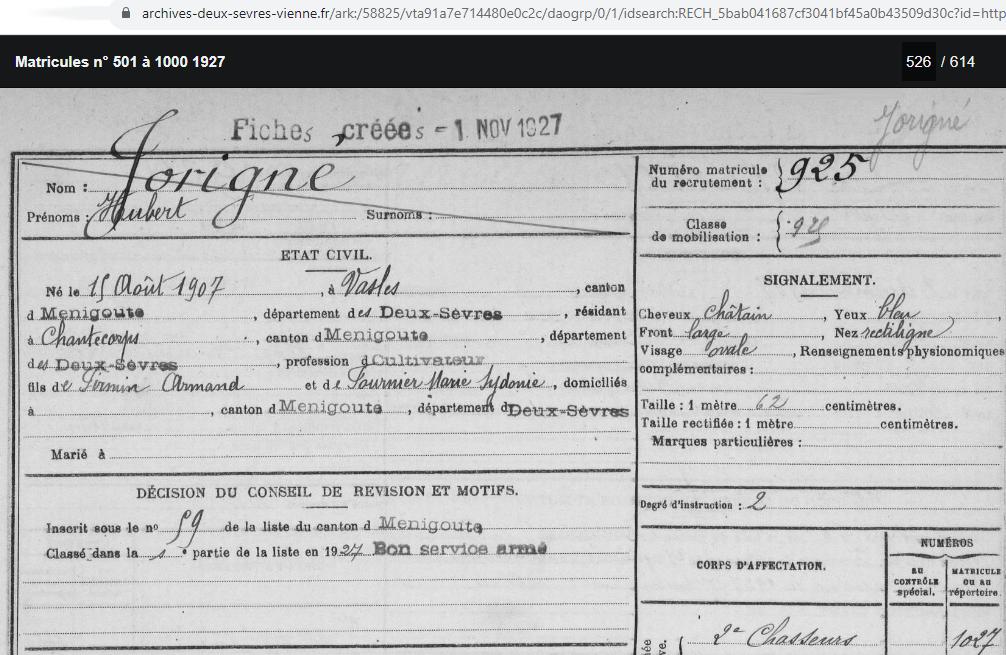 archives-deux-sevres-vienne.fr/ark:/58825/vta91a7e714480e0c2c/daogrp/0/1/idsearch:RECH_5bab041687cf3041bf45a0b43509d30c?id=http
Matricules n° 501 à 1000 1927
526 / 614
Fiches créées - 1 NOV 1927
Jorigné
Nom : Jorigne
Prénoms : Hubert Surnoms :
Numéro matricule
du recrutement : 925
Classe
de mobilisation :
ETAT CIVIL.
Né le 15 Août 1907, à Vasles, canton
d Menigoute, département des Deux-Sèvres, résidant
à Chantecorps, canton d Menigoute, département
des Deux-Sèvres, profession d Cultivateur
fils de Firmin Armand et de Fournier Marie Sydonie, domiciliés
à, canton d Menigoute, département d Deux-Sèvres
Marié à
SIGNALEMENT.
Cheveux Châtain, Yeux bleu,
Front large, Nez rectiligne
Visage ovale, Renseignements physionomiques
complémentaires :
Taille : 1 mètre 62 centimètres.
Taille rectifiée : 1 mètre centimètres.
Marques particulières :
Degré d'instruction : 2
DÉCISION DU CONSEIL DE REVISION ET MOTIFS.
Inscrit sous le n° 59 de la liste du canton d Menigoute
Classé dans la partie de la liste en 1927 Bon service armé
CORPS D'AFFECTATION.
NUMÉROS
AU
CONTRÔLE
spécial.
MATRICULE
ou au
répertoire.
2e Chasseurs
1027